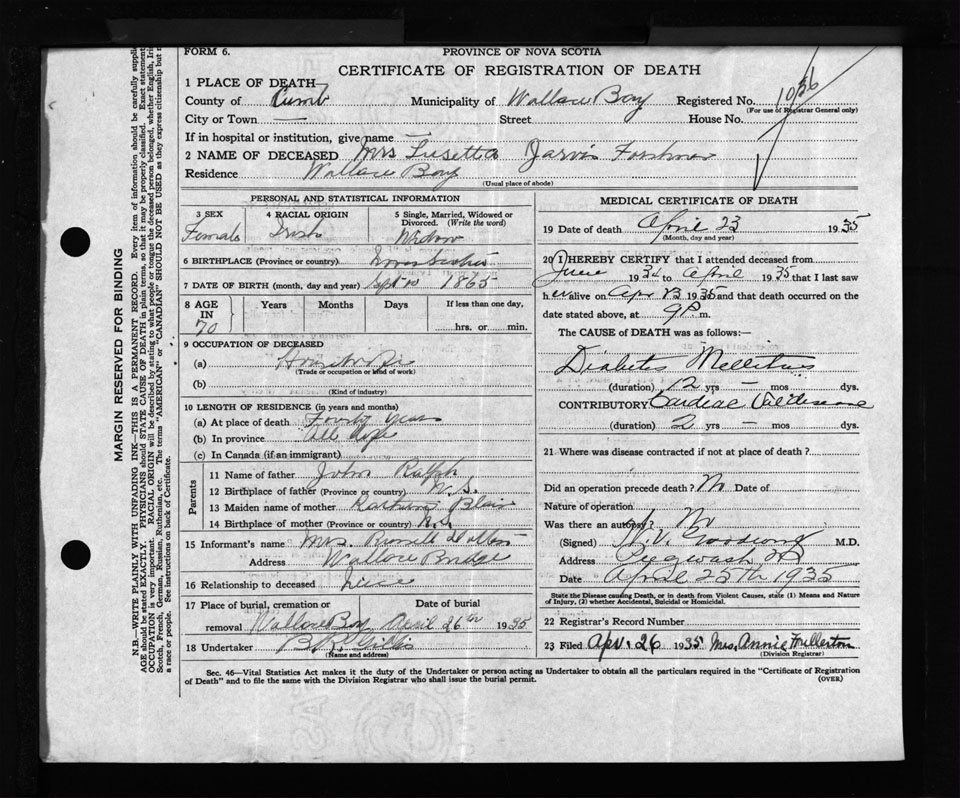 FORM 6.
PROVINCE OF NOVA SCOTIA
CERTIFICATE OF REGISTRATION OF DEATH
1 PLACE OF DEATH
County of Cumb Municipality of Wallace Bay Registered No. 1026
(For use of Registrar General only)
City or Town — Street House No.
If in hospital or institution, give name —
2 NAME OF DECEASED Mrs Lusetta Jarvis
Residence Wallace Bay
(Usual place of abode)
PERSONAL AND STATISTICAL INFORMATION
3 SEX
Female
4 RACIAL ORIGIN
Irish
5 Single, Married, Widowed or Divorced. (Write the word)
Widow
6 BIRTHPLACE (Province or country) Nova Scotia
7 DATE OF BIRTH (month, day and year) Sept 10 1865
8 AGE IN
70
Years Months Days If less than one day,
hrs. or min.
9 OCCUPATION OF DECEASED
(a) Housewife
(Trade or occupation or kind of work)
(b)
(Kind of industry)
10 LENGTH OF RESIDENCE (in years and months)
(a) At place of death Forty years
(b) In province All life
(c) In Canada (if an immigrant)
Parents
11 Name of father John Ralph
12 Birthplace of father (Province or country) N.S.
13 Maiden name of mother Blair
14 Birthplace of mother (Province or country) N.S.
15 Informant's name Mrs.
Address Wallace Bridge
16 Relationship to deceased niece
17 Place of burial, cremation or removal Date of burial
Wallace Bay April 26th 1935
18 Undertaker
(Name and address)
MEDICAL CERTIFICATE OF DEATH
19 Date of death April 23 1935
(Month, day and year)
20 I HEREBY CERTIFY that I attended deceased from
June 1932 to April 1935 that I last saw
her alive on Apr 1935 and that death occurred on the
date stated above, at 9 P m.
The CAUSE of DEATH was as follows:—
Diabetes Mellitus
(duration) 12 yrs — mos dys.
CONTRIBUTORY Cardiac
(duration) 2 yrs — mos dys.
21 Where was disease contracted if not at place of death?
Did an operation precede death? No Date of
Nature of operation
Was there an autopsy? No
(Signed) M.D.
Address Pugwash NS
Date April 25th 1935
State the Disease causing Death, or in death from Violent Causes, state (1) Means and Nature of Injury, (2) whether Accidental, Suicidal or Homicidal.
22 Registrar's Record Number
23 Filed Apr. 26 1935 Mrs. Annie Fullerton
(Division Registrar)
Sec. 46—Vital Statistics Act makes it the duty of the Undertaker or person acting as Undertaker to obtain all the particulars required in the "Certificate of Registration
of Death" and to file the same with the Division Registrar who shall issue the burial permit.
(OVER)
MARGIN RESERVED FOR BINDING
N.B.—WRITE PLAINLY WITH UNFADING INK—THIS IS A PERMANENT RECORD. Every item of information should be carefully supplied.
AGE should be stated EXACTLY. PHYSICIANS should STATE CAUSE OF DEATH in plain terms, so that it may be properly classified. Exact statement
OCCUPATION is very important. RACIAL ORIGIN will be described by stating to what people or tongue the deceased person belonged, whether English,
Scotch, French, German, Russian, Ruthenian, etc. The terms "AMERICAN" or "CANADIAN" SHOULD NOT BE USED as they express citizenship but
a race or people. See instructions on back of Certificate.